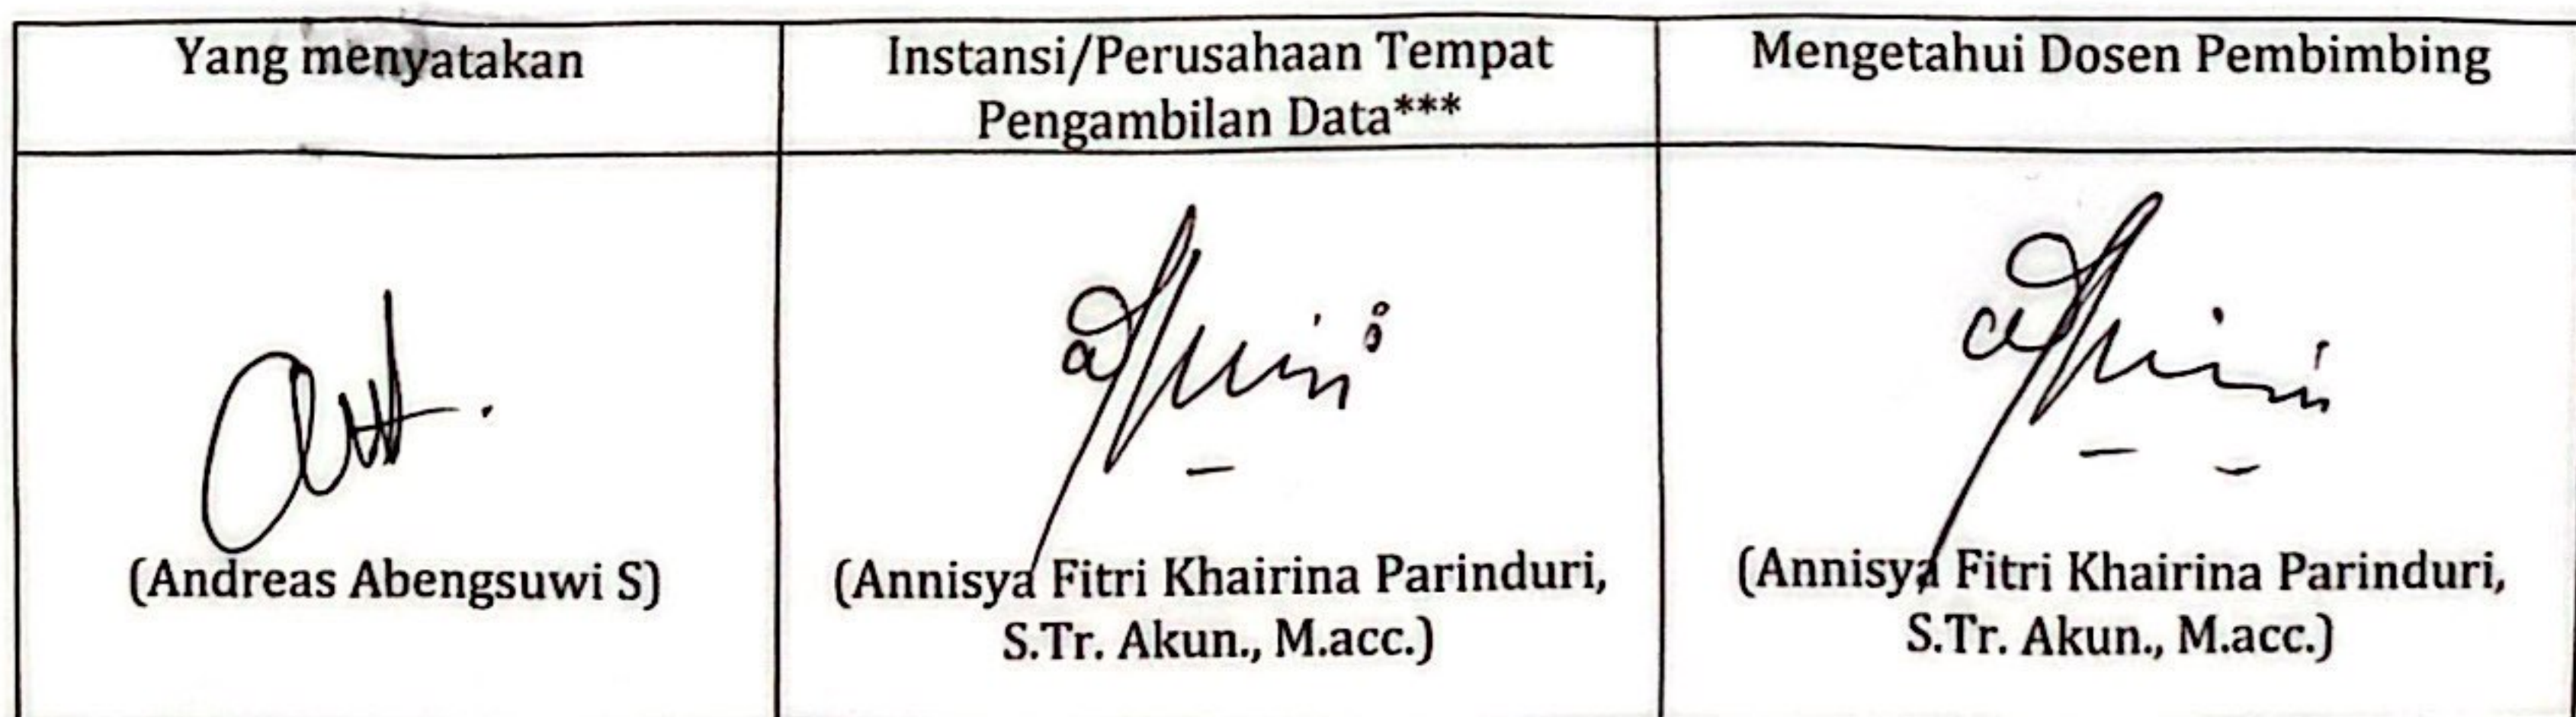 Yang menyatakan
Instansi/Perusahaan Tempat
Pengambilan Data***
Mengetahui Dosen Pembimbing
(Andreas Abengsuwi S)
(Annisya Fitri Khairina Parinduri,
S.Tr. Akun., M.acc.)
(Annisya Fitri Khairina Parinduri,
S.Tr. Akun., M.acc.)